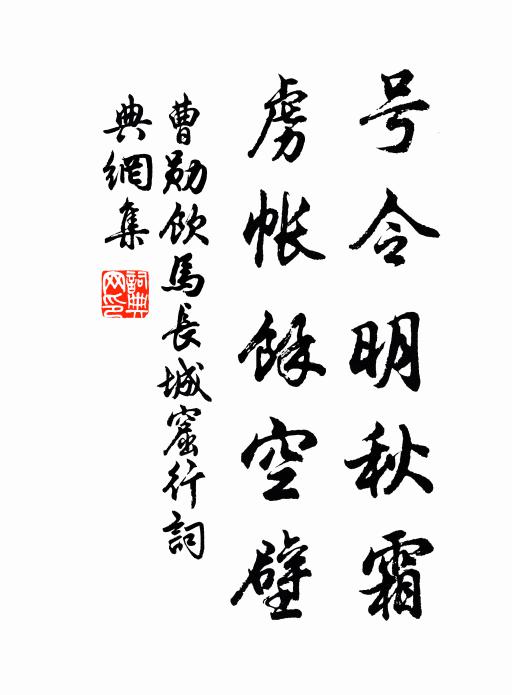 号令明秋霜
虏帐馀空壁
曹勋饮馬長城窟行詞
典網集
詞典网印